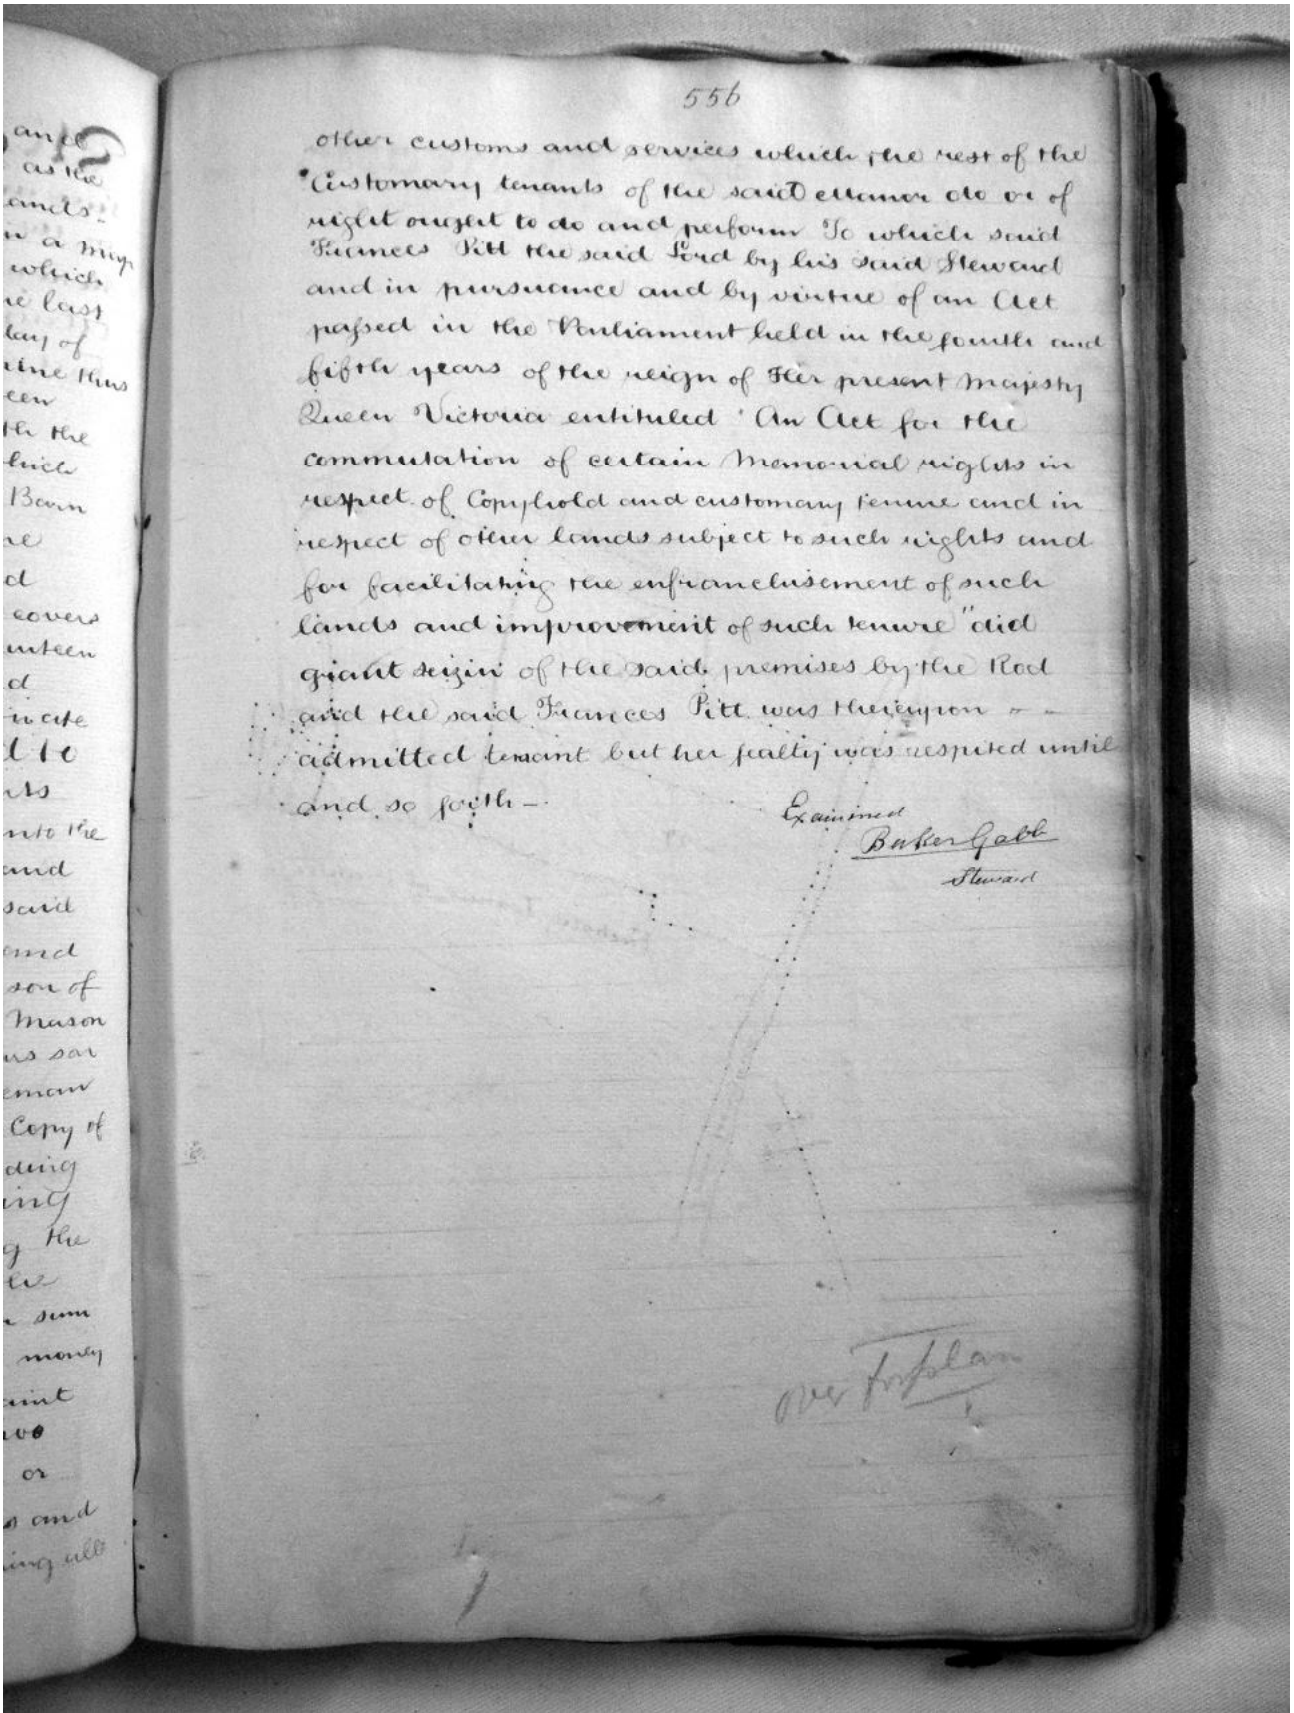 and
as the
ands
n a map
which
he last
day of
nine thus
een
th the
hich
Barn
ne
d
covers
enteen
d
ivate
d to
nts
nto the
and
said
and
son of
Mason
us son
eman
Copy of
ding
ing
g the
le
sum
money
aint
two
or
s and
ing all
556
other customs and services which the rest of the
Customary tenants of the said Manor do or of
right ought to do and perform To which said
Frances Pitt the said Lord by his said Steward
and in pursuance and by virtue of an Act
passed in the Parliament held in the fourth and
fifth years of the reign of Her present Majesty
Queen Victoria entituled "An Act for the
commutation of certain Memorial rights in
respect of Copyhold and customary tenure and in
respect of other lands subject to such rights and
for facilitating the enfranchisement of such
lands and improvement of such tenure" did
grant seizin of the said premises by the Rod
and the said Frances Pitt was thereupon
admitted tenant but her fealty was respited until
and so forth —
Examined
Baker Gabb
Steward
over for plan